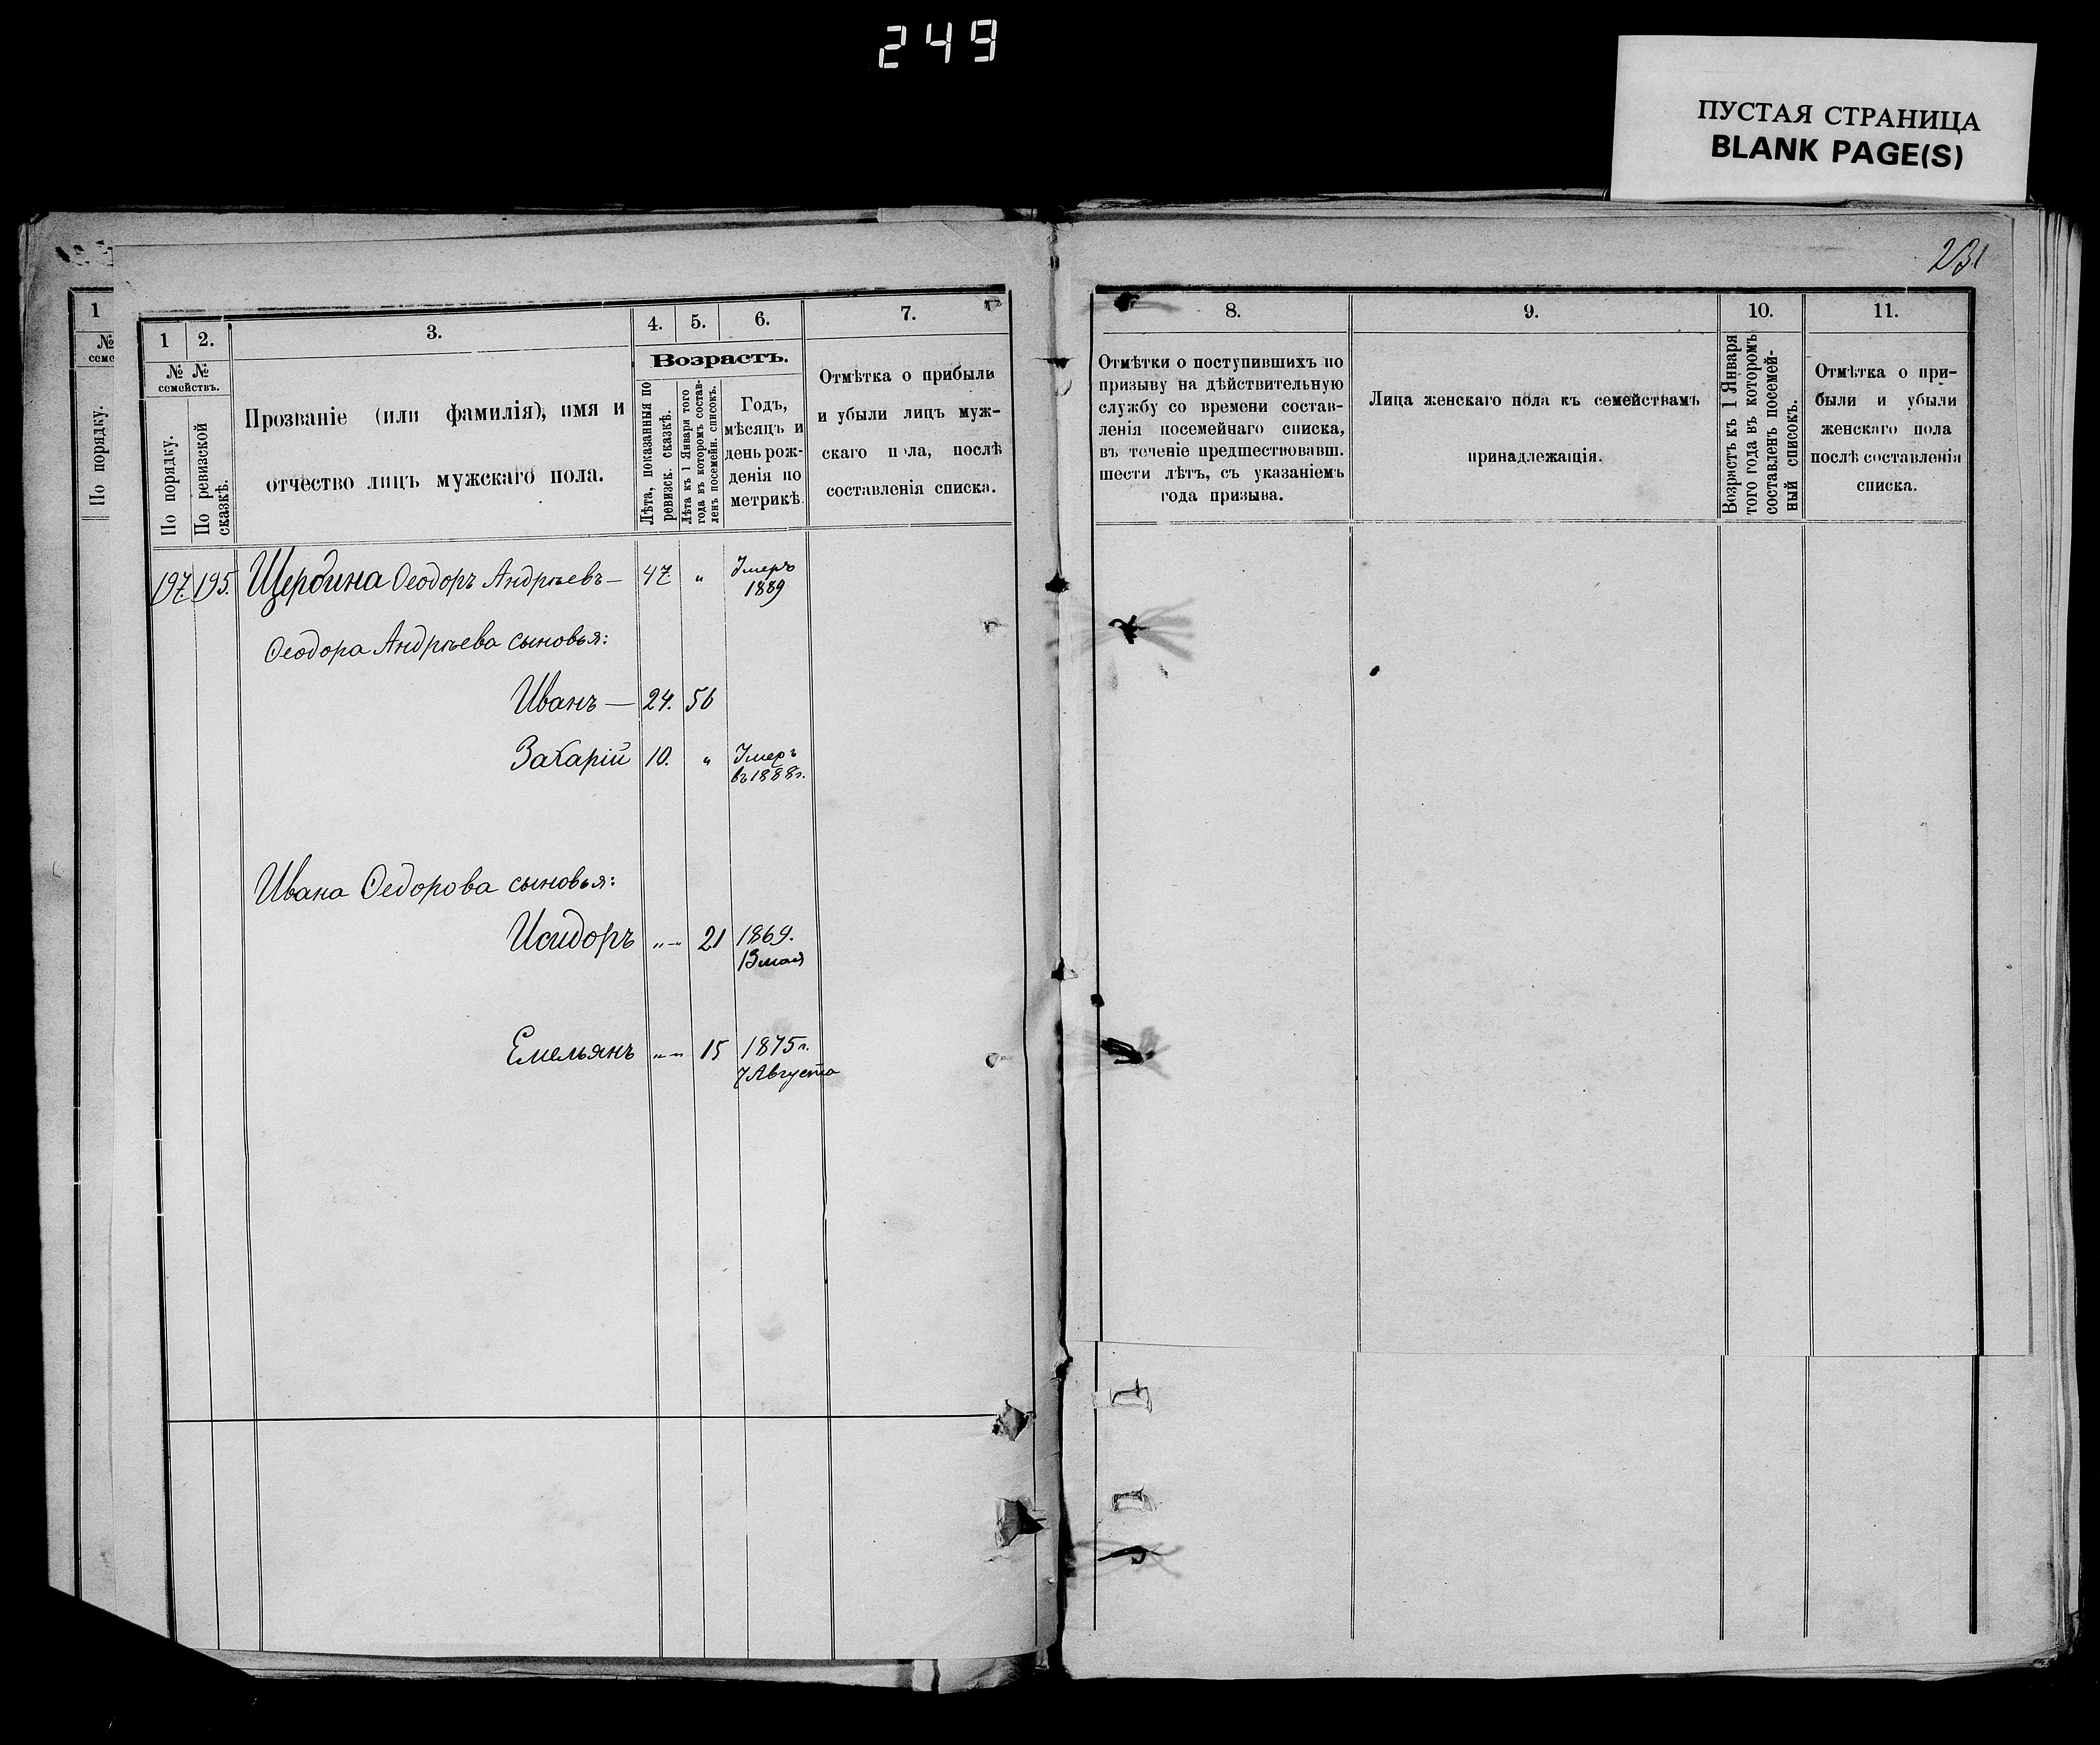 249
ПУСТАЯ СТРАНИЦА
BLANK PAGE(S)
231
1
№
семе
По порядку.
1
2.
3.
4.
5.
6.
7.
№ №
семействъ.
По порядку.
По ревизской сказкѣ.
Прозваніе (или фамилія), имя и
отчество лицъ мужскаго пола.
Возрастъ.
Лѣта, показанныя по
ревизск. сказкѣ.
Лѣта къ 1 Января того
года въ которомъ состав-
ленъ посемейн. списокъ.
Годъ,
мѣсяцъ и
день рож-
денія по
метрикѣ
Отмѣтка о прибыли
и убыли лицъ муж-
скаго пола, послѣ
составленія списка.
8.
9.
10.
11.
Отмѣтки о поступившихъ по
призыву на дѣйствительную
службу со времени состав-
ленія посемейнаго списка,
въ теченіе предшествовавш.
шести лѣтъ, съ указаніемъ
года призыва.
Лица женскаго пола къ семействамъ
принадлежащія.
Возрастъ къ 1 Января
того года въ которомъ
составленъ посемей-
ный списокъ.
Отмѣтка о при-
были и убыли
женскаго пола
послѣ составленія
списка.
197. 195. Щербина Ѳеодоръ Андрѣевъ — 47 " Умеръ
1889
Ѳеодора Андрѣева сыновья:
Иванъ — 24. 56
Захарій 10. " Умеръ
въ 1888 г.
Ивана Ѳедорова сыновья:
Исидоръ "–" 21 1869.
13 мая
Емельянъ "–" 15 1875 г.
7 Августа